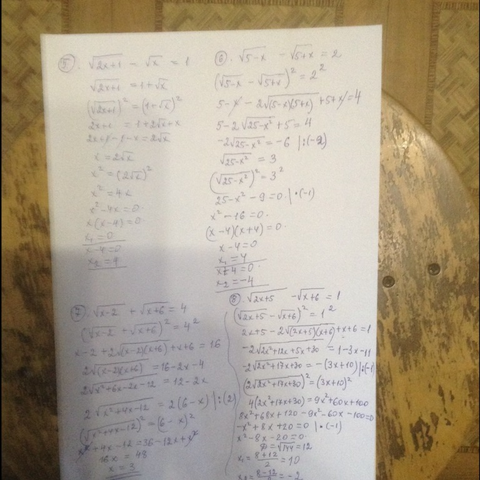 5) √2x+1 - √x = 1
√2x+1 = 1+√x
(√2x+1)² = (1-√x)²
2x+1 = 1+2√x+x
2x+1-1-x = 2√x
x = 2√x
x² = (2√x)²
x² = 4x
x²-4x = 0
x(x-4) = 0
x₁ = 0
x-4 = 0
x₂ = 4
6) √5-x - √5+x = 2
(√5-x - √5+x)² = 2²
5-x-2√(5-x)(5+x)+5+x = 4
5-2√25-x²+5 = 4
-2√25-x² = -6 |:(-2)
√25-x² = 3
(√25-x²)² = 3²
25-x²-9 = 0 |·(-1)
x²-16 = 0
(x-4)(x+4) = 0
x-4 = 0
x₁ = 4
x+4 = 0
x₂ = -4
7) √x-2 + √x+6 = 4
(√x-2 + √x+6)² = 4²
x-2+2√(x-2)(x+6)+x+6 = 16
2√(x-2)(x+6) = 16-2x-4
2√x²+6x-2x-12 = 12-2x
2√x²+4x-12 = 2(6-x) |:(2)
(√x²+4x-12)² = (6-x)²
x²+4x-12 = 36-12x+x²
16x = 48
x = 3
8) √2x+5 - √x+6 = 1
(√2x+5 - √x+6)² = 1²
2x+5-2√(2x+5)(x+6)+x+6 = 1
-2√2x²+12x+5x+30 = 1-3x-11
-2√2x²+17x+30 = -(3x+10) |:(-1)
(2√2x²+17x+30)² = (3x+10)²
4(2x²+17x+30) = 9x²+60x+100
8x²+68x+120-9x²-60x-100 = 0
-x²+8x+20 = 0 |·(-1)
x²-8x-20 = 0
√144 = 12
x₁ = 8+12/2 = 10
x₂ = 8-12/2 = -2